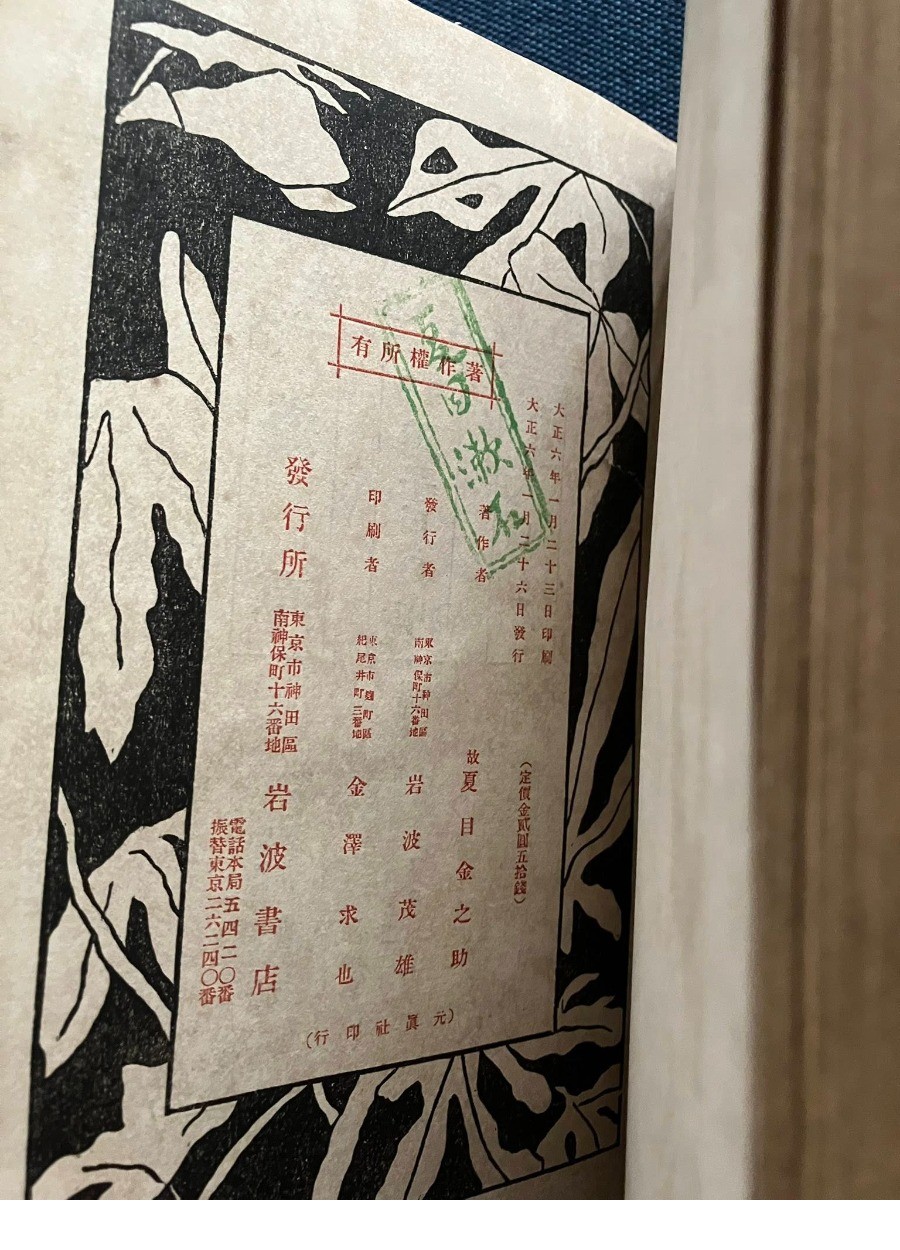 著作權所有
夏目漱石
大正六年一月二十三日印刷
大正六年一月二十六日發行
（定價金貳圓五拾錢）
著作者
故夏目金之助
發行者
東京市神田區
南神保町十六番地
岩波茂雄
印刷者
東京市麹町區
紀尾井町三番地
金澤求也
發行所
東京市神田區
南神保町十六番地
岩波書店
電話本局五四二〇番
振替東京二六二四〇番
（元眞社印行）